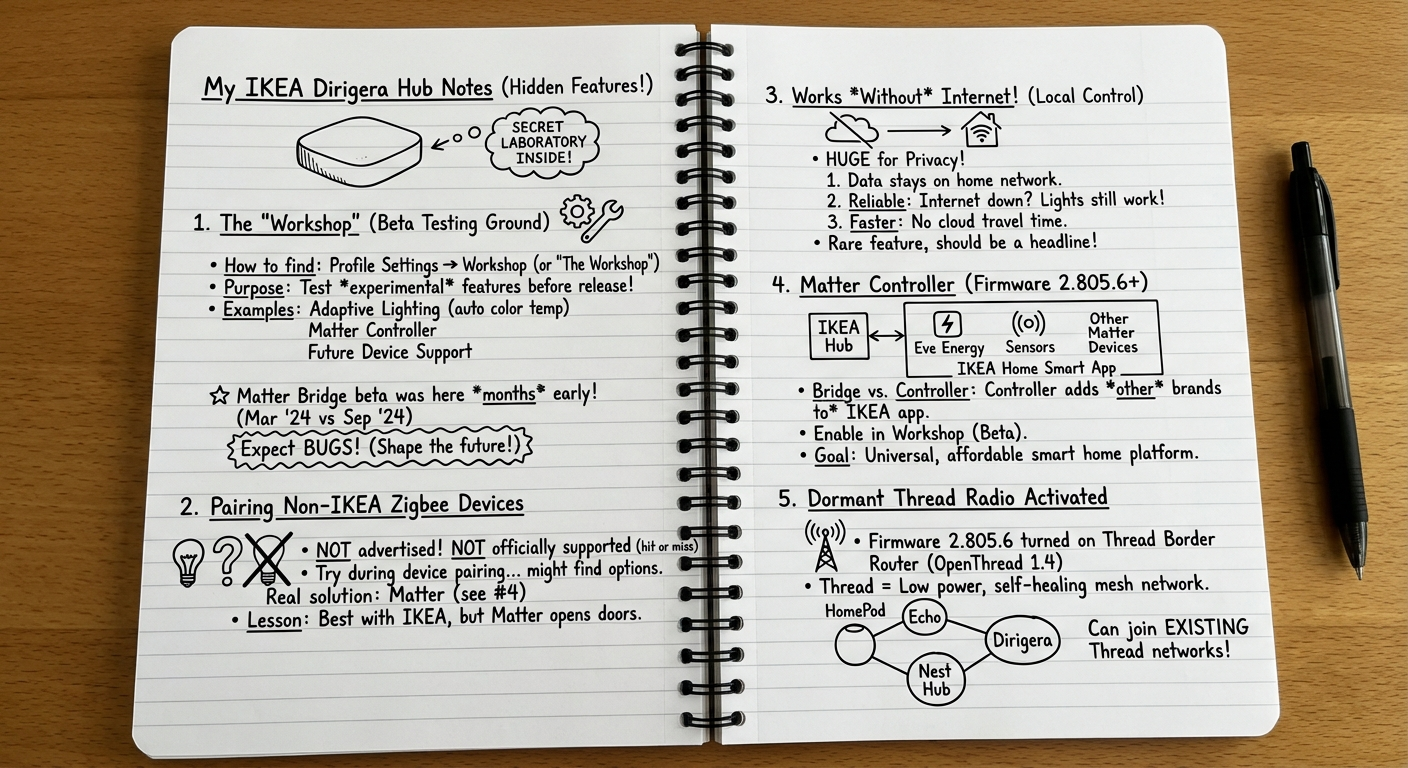 My IKEA Dirigera Hub Notes (Hidden Features!)
SECRET
LABORATORY
INSIDE!
1. The "Workshop" (Beta Testing Ground)
• How to find: Profile Settings → Workshop (or "The Workshop")
• Purpose: Test *experimental* features before release!
• Examples: Adaptive Lighting (auto color temp)
Matter Controller
Future Device Support
☆ Matter Bridge beta was here *months* early!
(Mar '24 vs Sep '24)
Expect BUGS! (Shape the future!)
2. Pairing Non-IKEA Zigbee Devices
• NOT advertised! NOT officially supported (hit or miss)
• Try during device pairing... might find options.
Real solution: Matter (see #4)
• Lesson: Best with IKEA, but Matter opens doors.
3. Works *Without* Internet! (Local Control)
• HUGE for Privacy!
1. Data stays on home network.
2. Reliable: Internet down? Lights still work!
3. Faster: No cloud travel time.
• Rare feature, should be a headline!
4. Matter Controller (Firmware 2.805.6+)
IKEA
Hub
Eve Energy
Sensors
Other
Matter
Devices
IKEA Home Smart App
• Bridge vs. Controller: Controller adds *other* brands
to* IKEA app.
• Enable in Workshop (Beta).
• Goal: Universal, affordable smart home platform.
5. Dormant Thread Radio Activated
• Firmware 2.805.6 turned on Thread Border
Router (OpenThread 1.4)
• Thread = Low power, self-healing mesh network.
HomePod
Echo
Dirigera
Nest
Hub
Can join EXISTING
Thread networks!